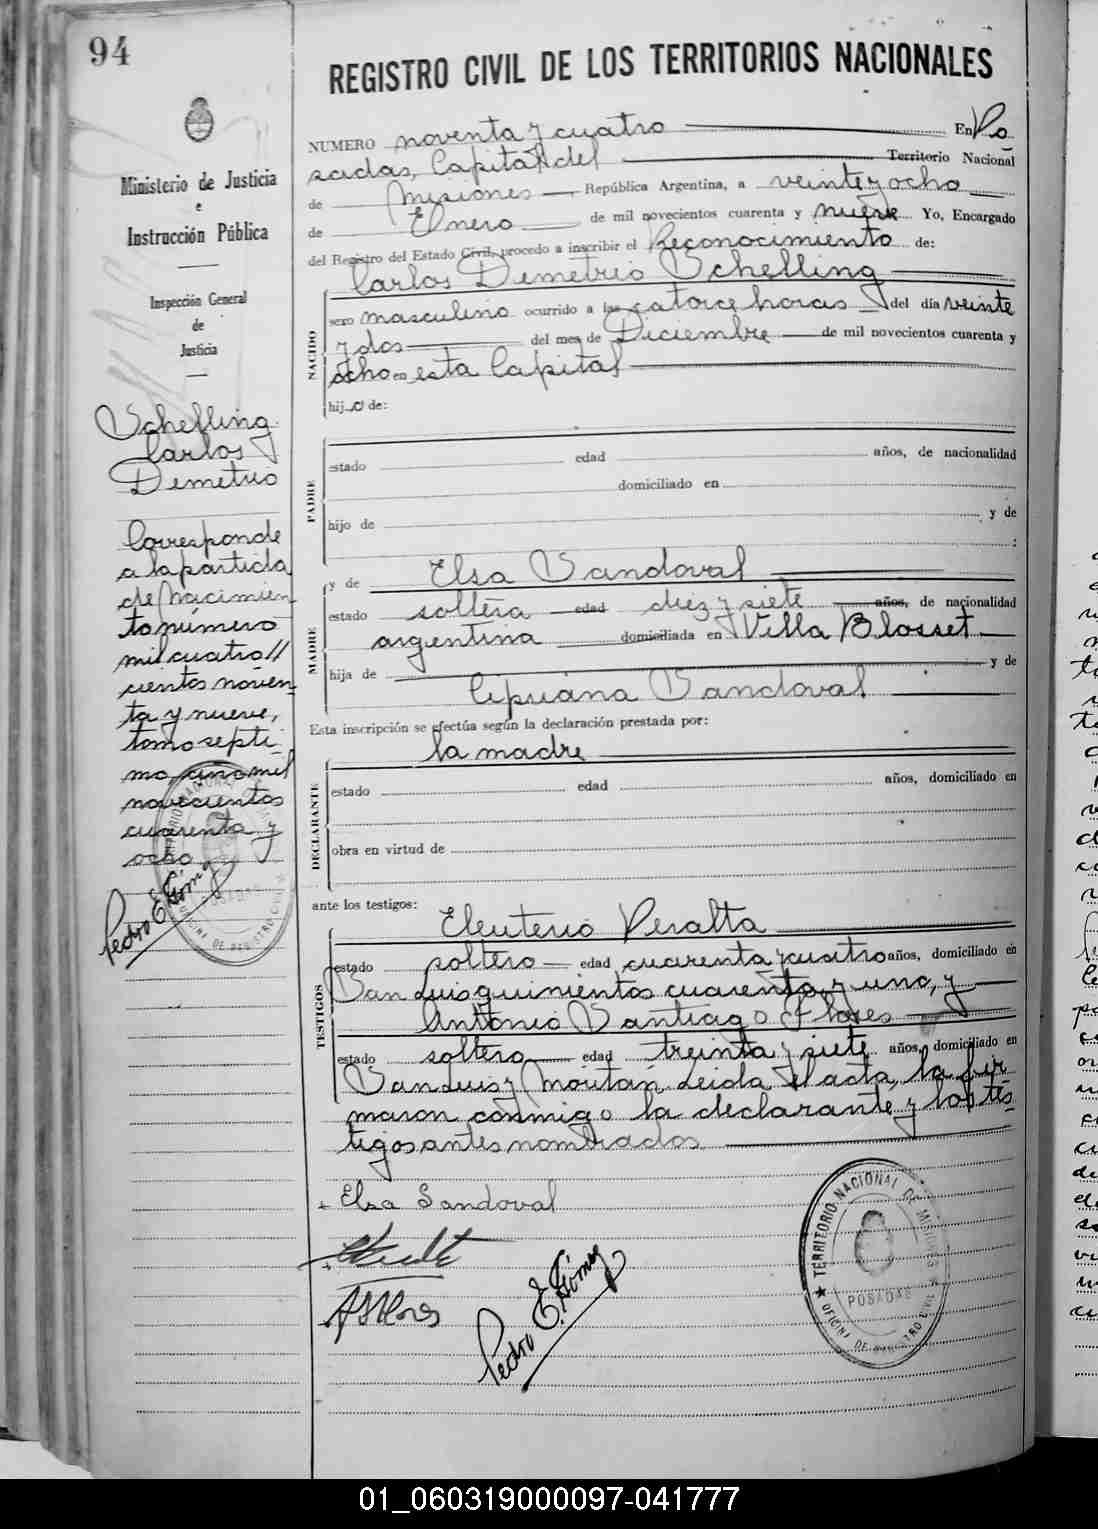 94
REGISTRO CIVIL DE LOS TERRITORIOS NACIONALES
Ministerio de Justicia
e
Instrucción Pública
Inspección General
de
Justicia
Schelling
Carlos
Demetrio
Corresponde
a la partida
de Nacimien
to número
mil cuatro//
cientos noven
ta y nueve,
tomo septi
mo, año mil
novecientos
cuarenta y
ocho
Pedro E. Gómez
NUMERO noventa y cuatro En Po
sadas, Capital del Territorio Nacional
de Misiones República Argentina, a veinte y ocho
de Enero de mil novecientos cuarenta y nueve Yo, Encargado
del Registro del Estado Civil, procedo a inscribir el Reconocimiento de:
Carlos Demetrio Schelling
NACIDO
sexo masculino ocurrido a las catorce horas del día veinte
y dos del mes de Diciembre de mil novecientos cuarenta y
ocho en esta Capital
hijo de:
PADRE
estado edad años, de nacionalidad
domiciliado en
hijo de y de
:
MADRE
y de Elsa Sandoval
estado soltera edad diez y siete años, de nacionalidad
argentina domiciliada en Villa Blosset
hija de y de
Cipriana Sandoval
Esta inscripción se efectúa según la declaración prestada por:
la madre
DECLARANTE
estado edad años, domiciliado en
obra en virtud de
ante los testigos:
Eleuterio Peralta
TESTIGOS
estado soltero edad cuarenta y cuatro años, domiciliado en
San Luis quinientos cuarenta y uno, y
Antonio Santiago Flores
estado soltero edad treinta y siete años, domiciliado en
San Luis y Moután. Leída el acta, la fir
maron conmigo la declarante y los tes
tigos antes nombrados
Elsa Sandoval
ASFlores
Pedro E. Gómez
TERRITORIO NACIONAL DE MISIONES
POSADAS
OFICINA DE REGISTRO CIVIL
01_060319000097-041777